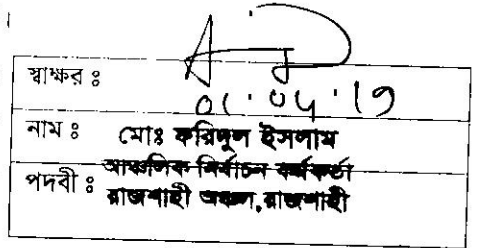 স্বাক্ষর ঃ
01.04.19
নাম ঃ মোঃ ফরিদুল ইসলাম
পদবী ঃ আঞ্চলিক নির্বাচন কর্মকর্তা
রাজশাহী অঞ্চল, রাজশাহী